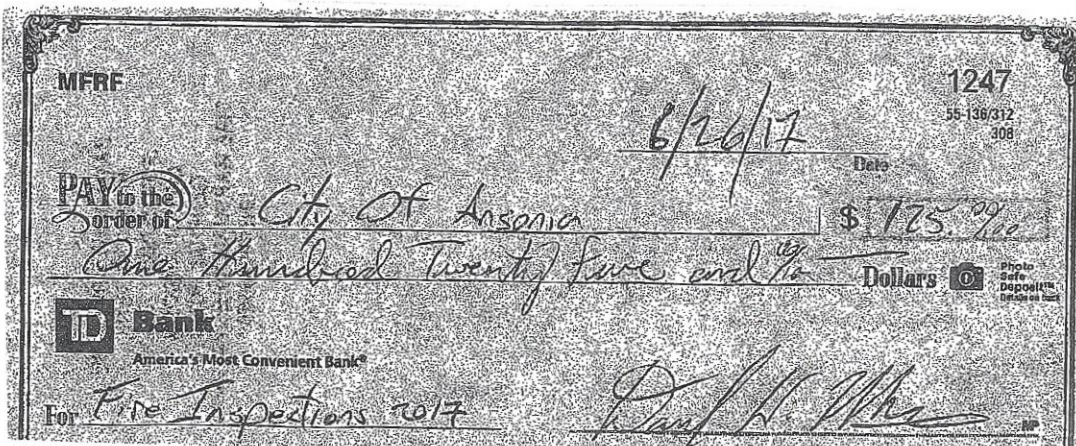 MFRF
1247
55-136/312
308
6/26/17
Date
PAY to the order of City Of Ansonia $ 125 00/100
One Hundred Twenty Five and 00/100 Dollars Photo Safe Deposit™ Details on back
TD Bank
America's Most Convenient Bank®
For Fire Inspections 2017
MP